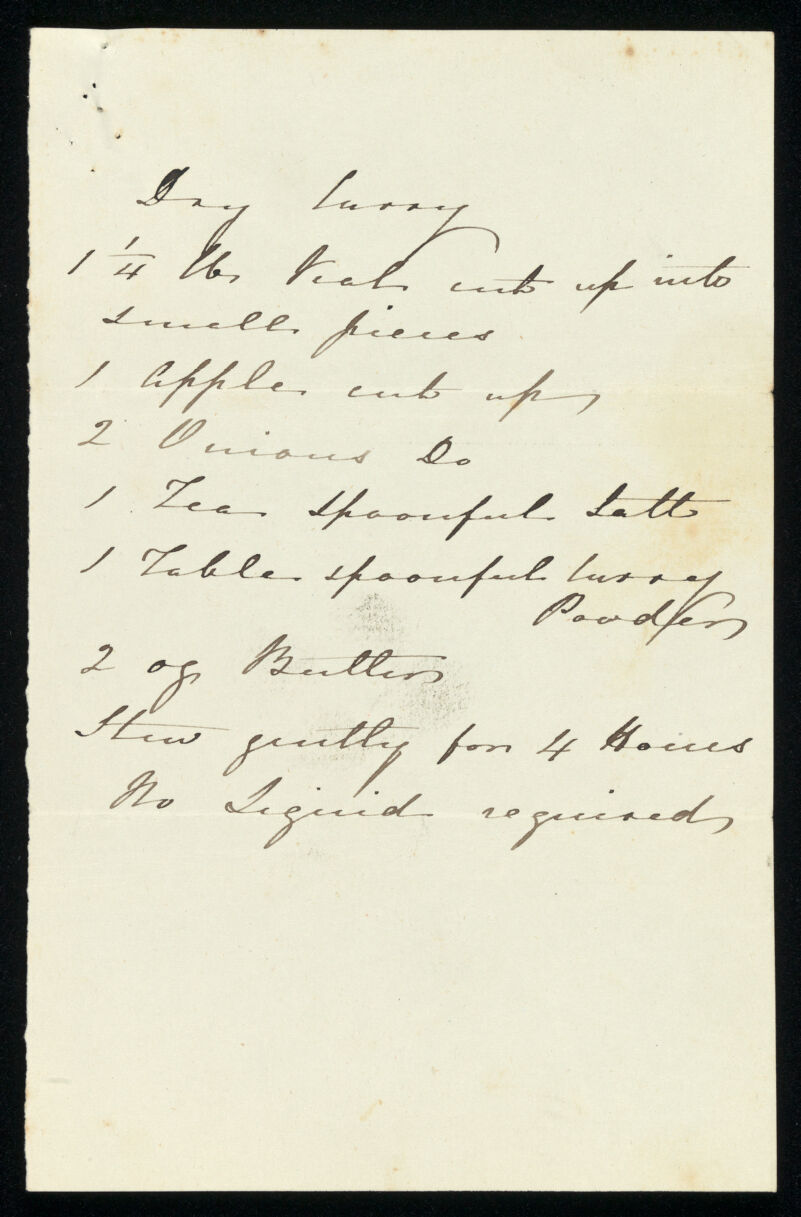 Dry Curry
1 1/4 lb Veal cut up into
small pieces
1 Apple cut up
2 Onions Do
1 Tea spoonful Salt
1 Table spoonful Curry
Powder
2 oz Butter
Stew gently for 4 Hours
No Liquid required